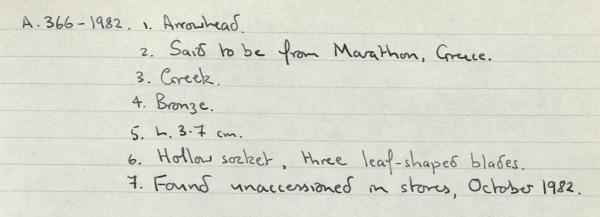 A.366-1982. 1. Arrowhead.
2. Said to be from Marathon, Greece.
3. Greek.
4. Bronze.
5. L. 3.7 cm.
6. Hollow socket, three leaf-shaped blades.
7. Found unaccessioned in stores, October 1982.